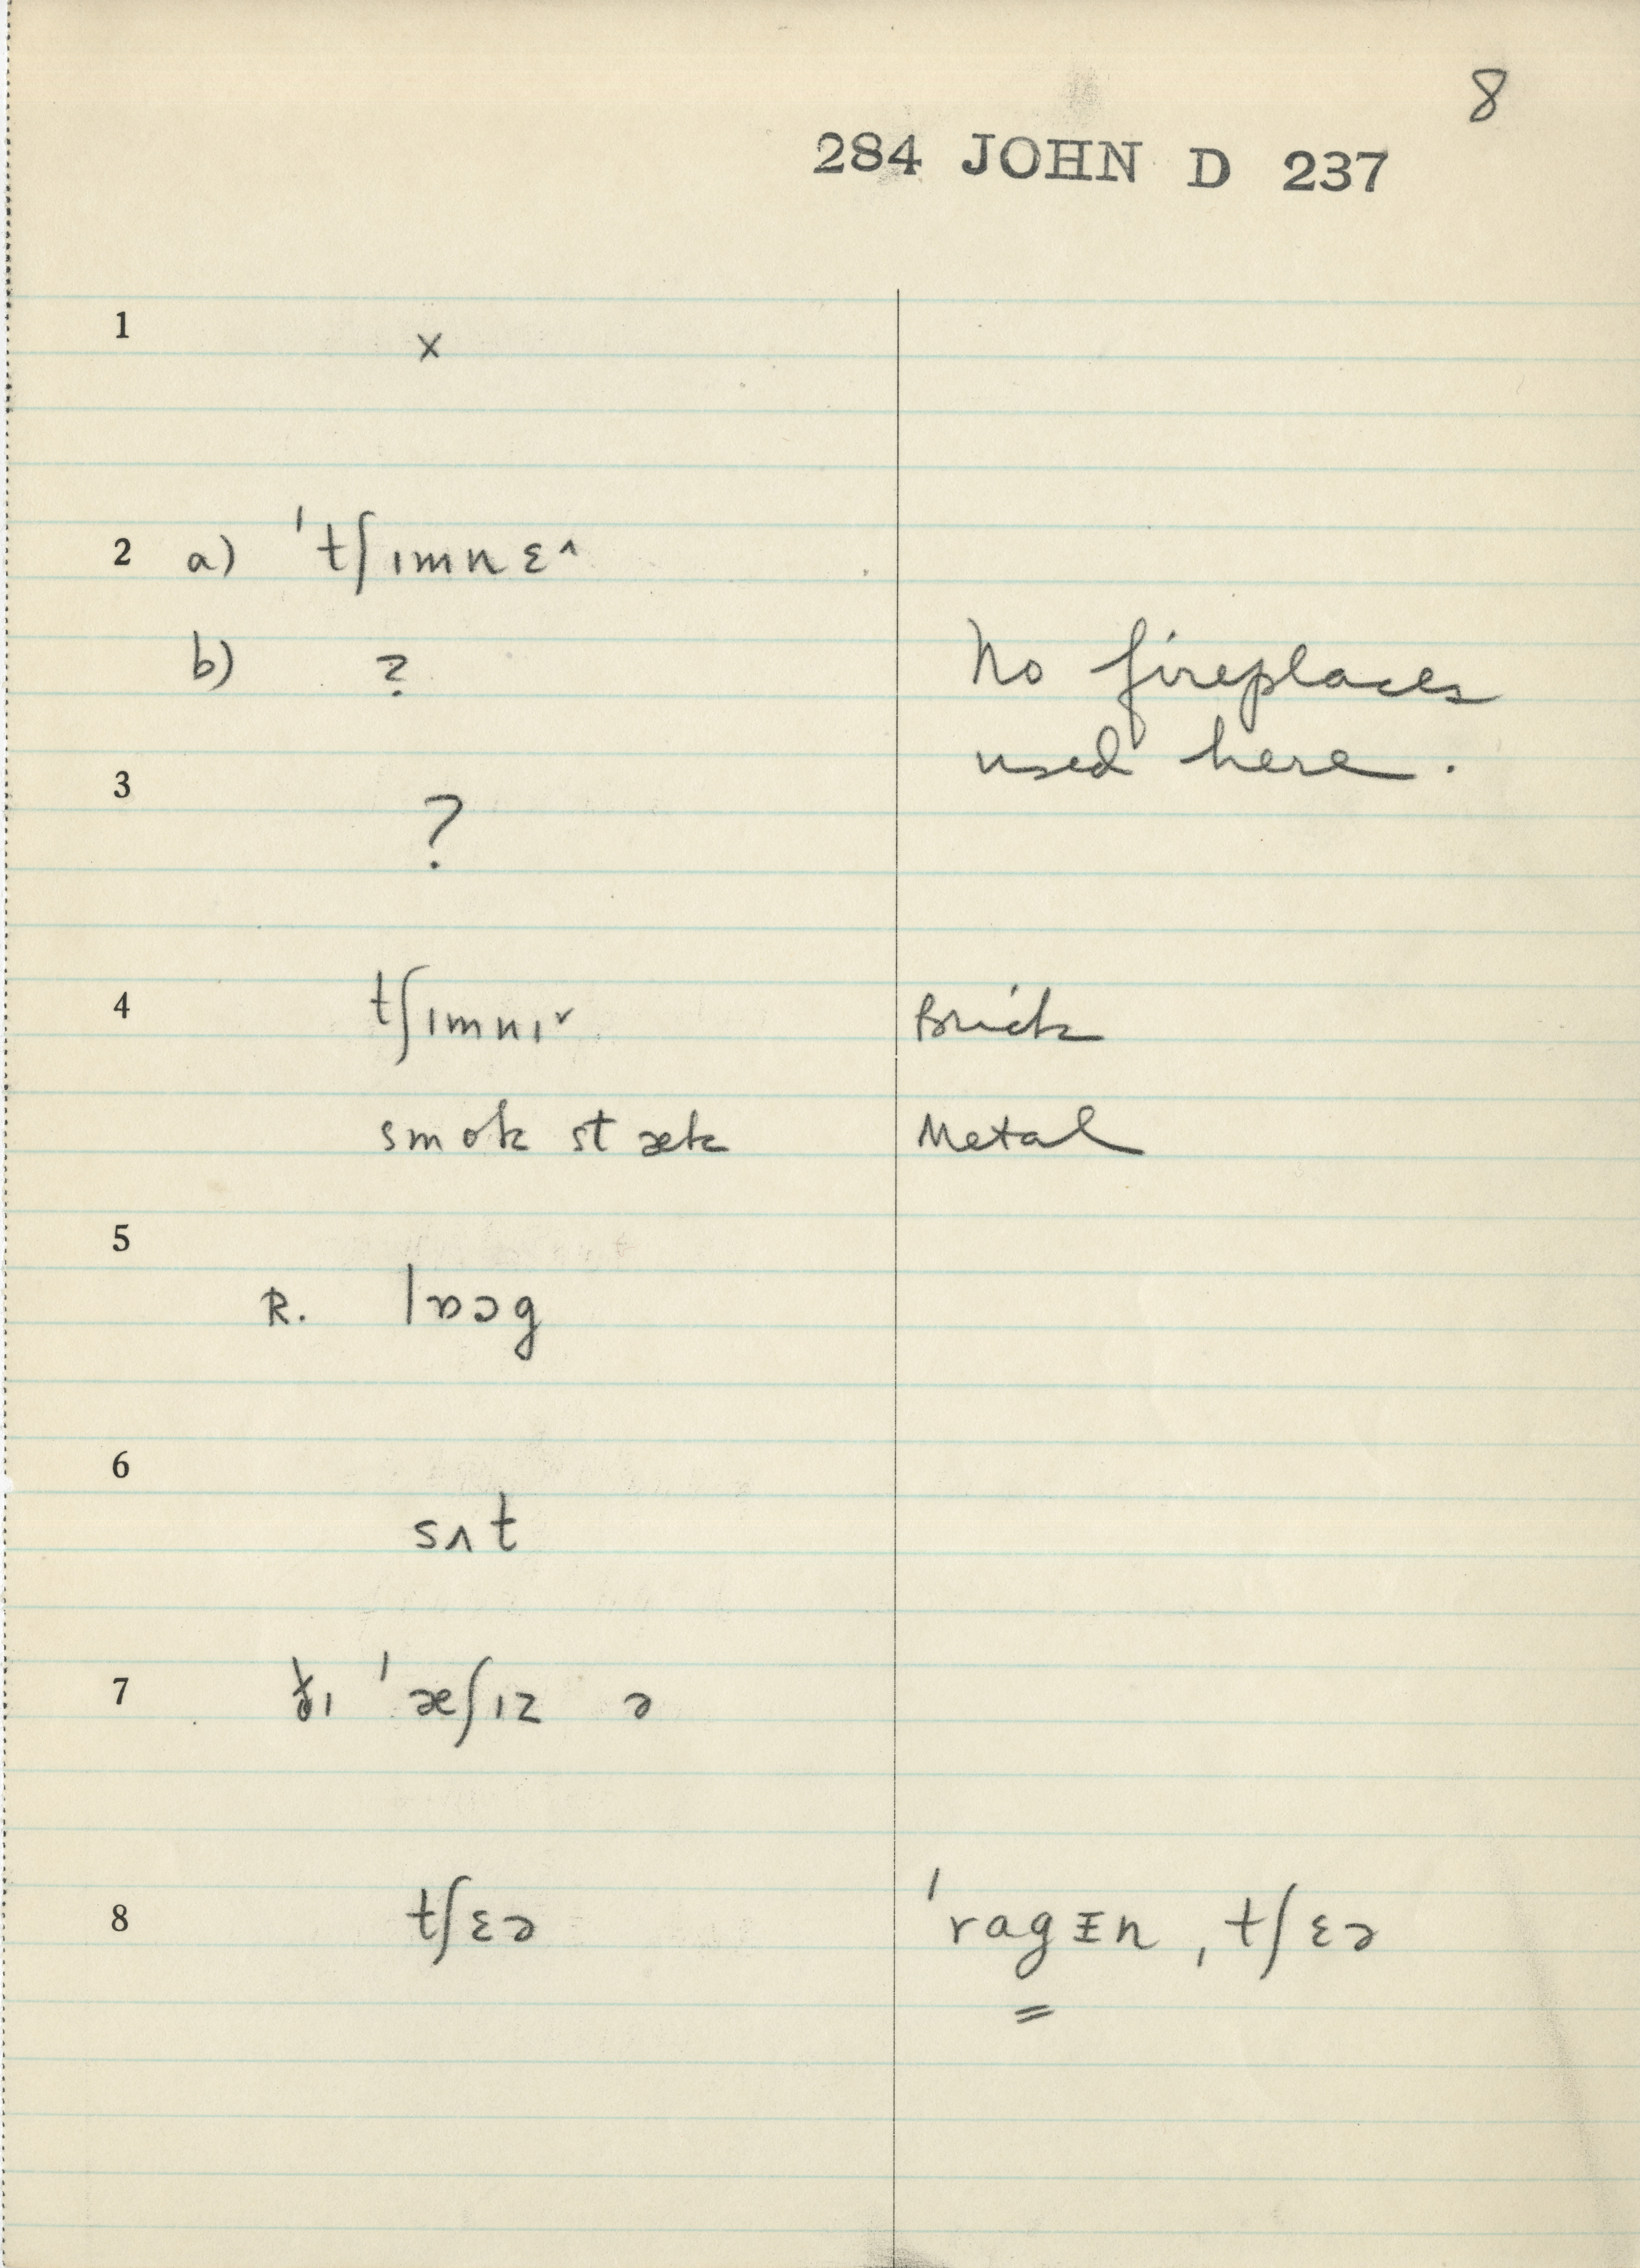 8
284 JOHN D 237
1 x
2 a) ˈtʃɪmnɛ^
b) ?
No fireplaces
used here.
3 ?
4 tʃɪmnɪ˅ Brick
smok stæk Metal
5 R. lɒɔg
6 sʌt
7 ðɪ ˈæʃɪz ə
8 tʃɛə ˈragɪn ˌtʃɛə